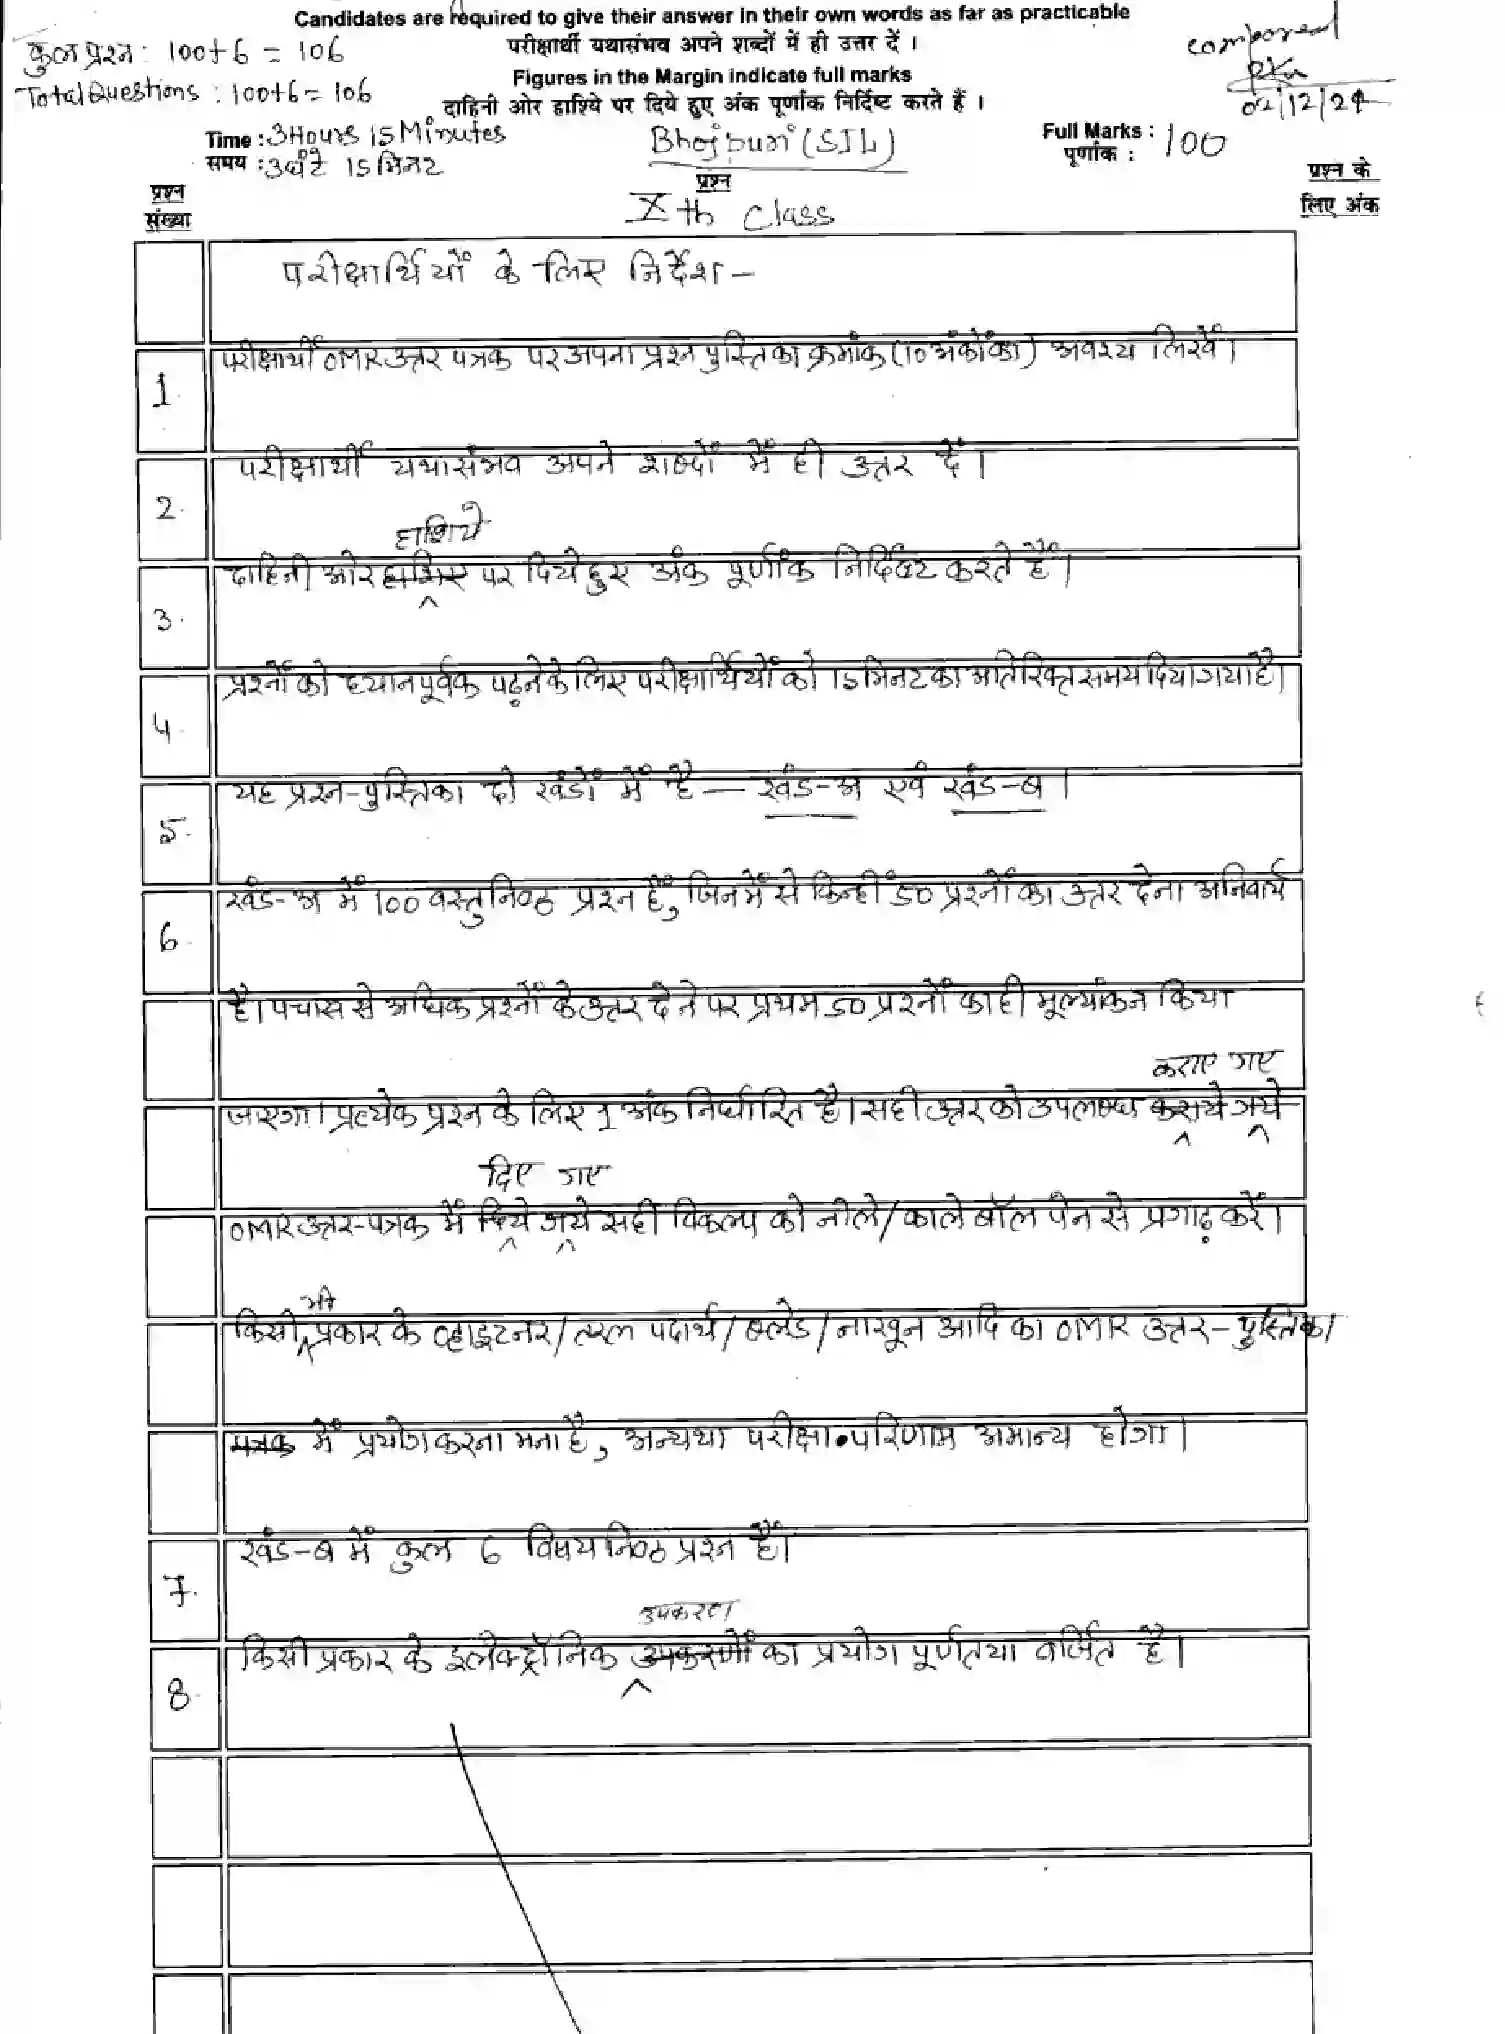 Candidates are required to give their answer in their own words as far as practicable
कुल प्रश्न : 100+6 = 106
परीक्षार्थी यथासंभव अपने शब्दों में ही उत्तर दें ।
composed
Figures in the Margin indicate full marks
Total Questions : 100+6 = 106
दाहिनी ओर हाशिये पर दिये हुए अंक पूर्णांक निर्दिष्ट करते हैं ।
02/12/24
Time : 3 Hours 15 Minutes
Bhojpuri (SIL)
Full Marks : 100
समय : 3 घंटे 15 मिनट
पूर्णांक :
प्रश्न
प्रश्न के
प्रश्न
संख्या
Xth Class
लिए अंक
परीक्षार्थियों के लिए निर्देश –
1. परीक्षार्थी OMR उत्तर पत्रक पर अपना प्रश्न पुस्तिका क्रमांक (10 अंकों का) अवश्य लिखें।
2. परीक्षार्थी यथासंभव अपने शब्दों में ही उत्तर दें।
हाशिये
3. दाहिनी ओर पर दिये हुए अंक पूर्णांक निर्दिष्ट करते हैं।
4. प्रश्नों को ध्यानपूर्वक पढ़ने के लिए परीक्षार्थियों को 15 मिनट का अतिरिक्त समय दिया गया है।
5. यह प्रश्न-पुस्तिका दो खंडों में है — खंड-अ एवं खंड-ब।
6. खंड-अ में 100 वस्तुनिष्ठ प्रश्न हैं, जिनमें से किन्हीं 50 प्रश्नों का उत्तर देना अनिवार्य
है। पचास से अधिक प्रश्नों के उत्तर देने पर प्रथम 50 प्रश्नों का ही मूल्यांकन किया
कराए गए
जाएगा। प्रत्येक प्रश्न के लिए 1 अंक निर्धारित है। सही उत्तर को उपलब्ध कराये गये
दिए गए
OMR उत्तर-पत्रक में दिये गये सही विकल्प को नीले/काले बॉल पेन से प्रगाढ़ करें।
भी
किसी प्रकार के व्हाइटनर/तरल पदार्थ/ब्लेड/नाखून आदि का OMR उत्तर-पुस्तिका
पत्रक में प्रयोग करना मना है, अन्यथा परीक्षा परिणाम अमान्य होगा।
7. खंड-ब में कुल 6 विषयनिष्ठ प्रश्न हैं।
उपकरण
8. किसी प्रकार के इलेक्ट्रॉनिक उपकरणों का प्रयोग पूर्णतया वर्जित है।